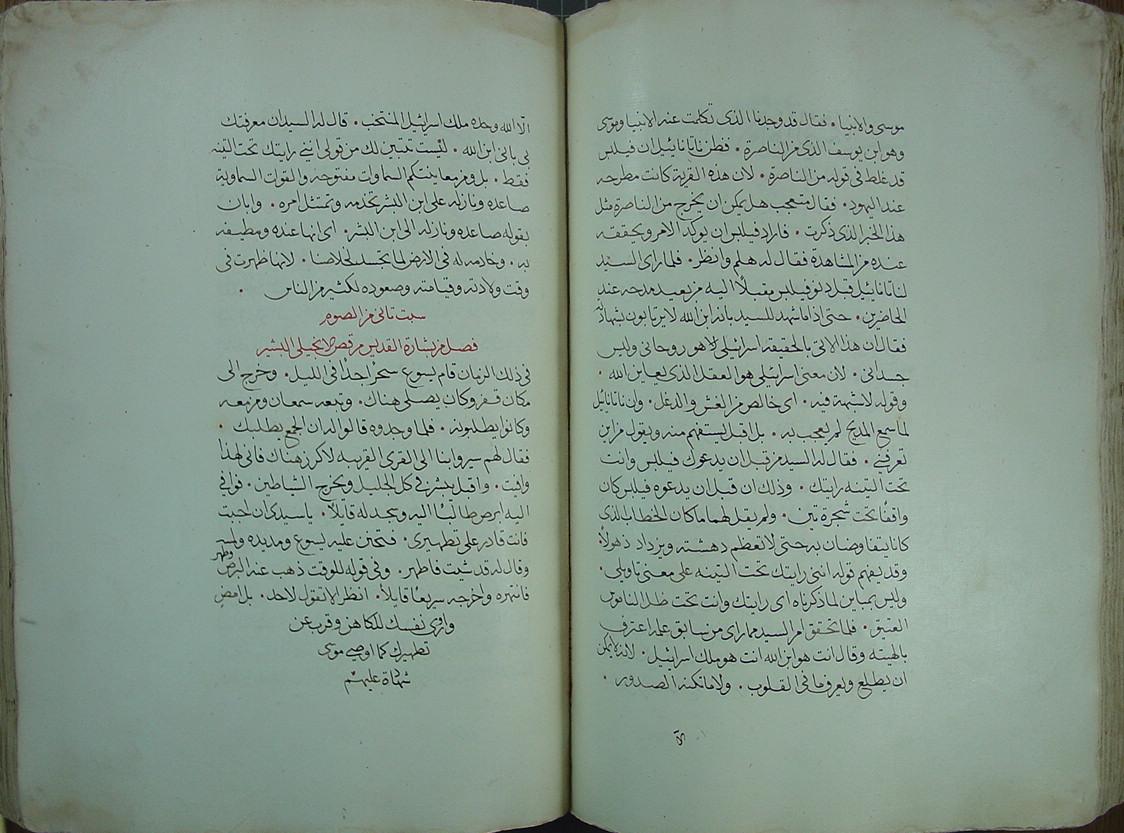 موسى والانبيا. فقال قد وجدنا الذى تكلمت عنه الانبيا وموسى
وهو ابن يوسف الذى من الناصرة. فظن ناتانائيل ان فيلبس
قد غلط فى قوله من الناصرة. لان هذه القرية كانت مطرحه
عند اليهود. فقال متعجب هل يمكن ان يخرج من الناصرة مثل
هذا الخبر الذى ذكرت. فاراد فيلبس ان يوكد الامر ويحققه
عنده من المشاهدة فقال له هلم وانظر. فلما راى السيد
لناتانائيل مقبلًا اليه مدحه عند
الحاضرين. حتى اذا ما شهد للسيد بانه ابن الله لا يرتابون بشهادته
فقال ان هذا الاتى بالحقيقه اسرائيلى لاهو روحانى وليس
جسدانى. لان معنى اسرائيلى هو العقل الذى يعاين الله.
وقوله لا شبهة فيه. اى خالص من الغش والدغل. وان ناتانائيل
لما سمع المديح لم يعجب به. بل اقبل يستفهم منه ويقول من اين
تعرفنى. فقال له السيد من قبل ان يدعوك فيلبس وانت
تحت التينه رايتك. وذلك ان قبل ان يدعوه فيلبس كان
واقفًا تحت شجرة تين. ولم يقل لهما ما كان الخطاب الذى
كانا يتفاوضان به حتى لا تعظم دهشته ويزداد ذهولًا
وقد يفهم قوله اننى رايتك تحت التينه على معنى تاويلى.
وليس بمباين لما ذكرناه اى رايتك وانت تحت ظل الناموس
العتيق. فلما تحقق امر السيد مما راى من سابق علمه اعترف
بالهيته وقال انت هو ابن الله انت هو ملك اسرائيل. لانه لا يمكن
ان يطلع ويعرف ما فى القلوب. ولا ما تكنه الصدور.
الا
الّا الله وحده ملك اسرائيل المنتخب. قال له السيد ان معرفتك
لى بانى ابن الله. ليست تتبين لك من قولى اننى رايتك تحت التينه
فقط. بل ومن معاينتكم السماوات مفتوحه والقوات السماوية
صاعده ونازله على ابن البشر تخدمه وتمتثل امره. وابان
بقوله صاعده ونازله الى ابن البشر. اى انها عنده ومطيفه
به. وخادمه له فى الارض لما تجسد لخلاصنا. لانها ظهرت فى
وقت ولادته وقيامته وصعوده لكثير من الناس.
سبت ثانى من الصوم
فصل من بشارة القديس مرقص الانجيلى البشير
فى ذلك الزمان قام يسوع سحرًا جدًا فى الليل. وخرج الى
مكان قفر وكان يصلى هناك. وتبعه سمعان ومن معه
وكانوا يطلبونه. فلما وجدوه قالوا له ان الجمع يطلبك.
فقال لهم سيروا بنا الى القرى القريبه لاكرز هناك فانى لهذا
وافيت. واقبل يبشر فى كل الجليل ويخرج الشياطين. فوافى
اليه ابرص طالبًا اليه ويسجد له قايلًا. يا سيدى ان احببت
فانت قادر على تطهيرى. فتحنن عليه يسوع ومد يده ولمسه
وقال له قد شيت فاطهر. وفى قوله للوقت ذهب عنه البرص وطهر
فانتهره واخرجه سريعًا قايلًا. انظر لا تقول لاحد. بل امض
وارى نفسك للكاهن وقرب عن
تطهيرك كما اوصى موسى
شهادة عليهم